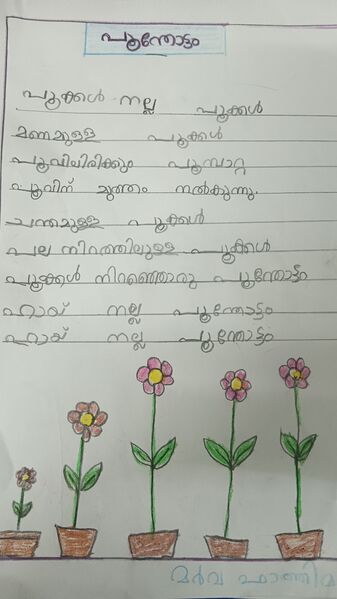 പൂന്തോട്ടം
പൂക്കൾ നല്ല പൂക്കൾ
മണമുള്ള പൂക്കൾ
പൂവിലിരിക്കും പൂമ്പാറ്റ
പൂവിന് മുത്തം നൽകുന്നു.
ചന്തമുള്ള പൂക്കൾ
പല നിറത്തിലുള്ള പൂക്കൾ
പൂക്കൾ നിറഞ്ഞൊരു പൂന്തോട്ടം
ഹായ് നല്ല പൂന്തോട്ടം
ഹായ് നല്ല പൂന്തോട്ടം
മർവ ഫാത്തിമ